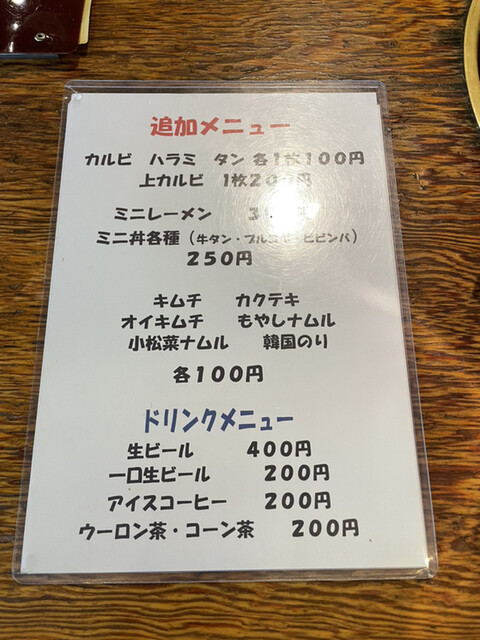 追加メニュー
カルビ ハラミ タン 各1枚100円
上カルビ 1枚200円
ミニレーメン 円
ミニ丼各種（牛タン・プルコギ・ビビンバ）
250円
キムチ カクテキ
オイキムチ もやしナムル
小松菜ナムル 韓国のり
各100円
ドリンクメニュー
生ビール 400円
一口生ビール 200円
アイスコーヒー 200円
ウーロン茶・コーン茶 200円